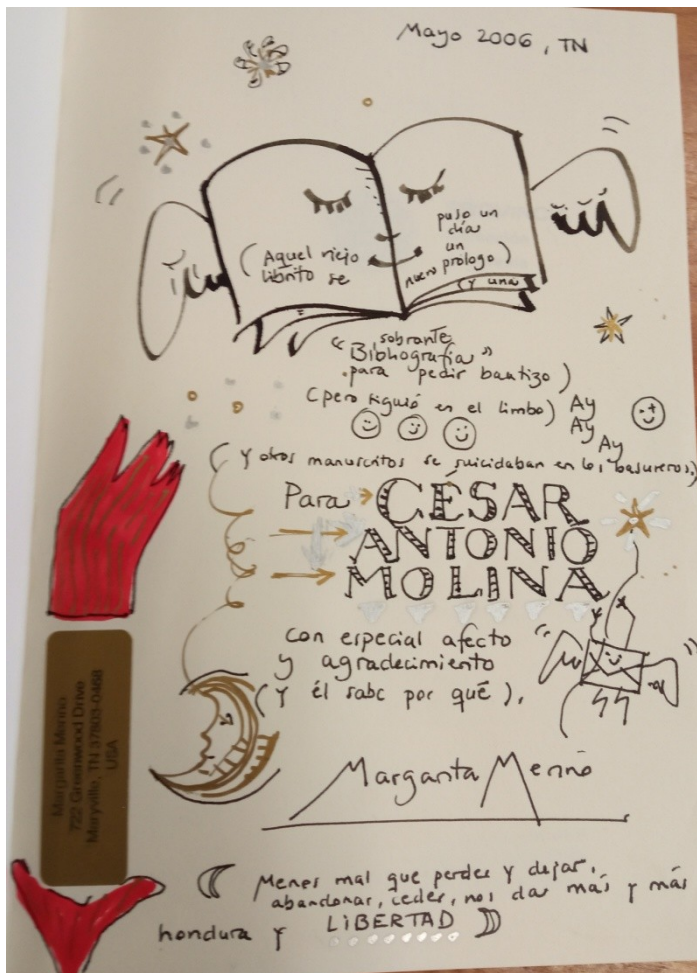 Mayo 2006, TN
(Aquel viejo
librito se
puso un
día
un
nuevo prólogo)
(y una
sobrante
"Bibliografía"
para pedir bautizo)
(pero siguió en el limbo) Ay
Ay
Ay
(y otros manuscritos se suicidaban en los basureros,)
Para CÉSAR
ANTONIO
MOLINA
con especial afecto
y agradecimiento
(y él sabe por qué),
Margarita Merino
Margarita Merino
722 Greenwood Drive
Maryville, TN 37803-0468
USA
Menos mal que perder y dejar,
abandonar, ceder, nos dan más y más
hondura y LiBERTAD